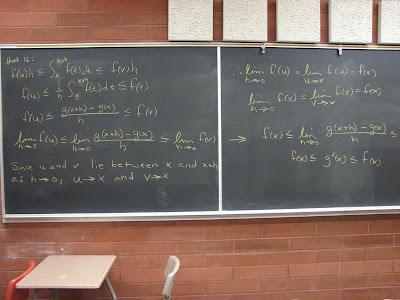 that is:
f(u)h ≤ ∫ₓˣ⁺ʰ f(t)dt ≤ f(v)h
f(u) ≤ 1/h ∫ₓˣ⁺ʰ f(t)dt ≤ f(v)
f(u) ≤ (g(x+h) - g(x))/h ≤ f(v)
lim h→0 f(u) ≤ lim h→0 (g(x+h) - g(x))/h ≤ lim h→0 f(v)
Since u and v lie between x and x+h
as h→0, u→x and v→x
∴ lim h→0 f(u) = lim u→x f(u) = f(x)
lim h→0 f(v) = lim v→x f(v) = f(x)
⇒ f(x) ≤ lim h→0 (g(x+h) - g(x))/h ≤
f(x) ≤ g'(x) ≤ f(x)